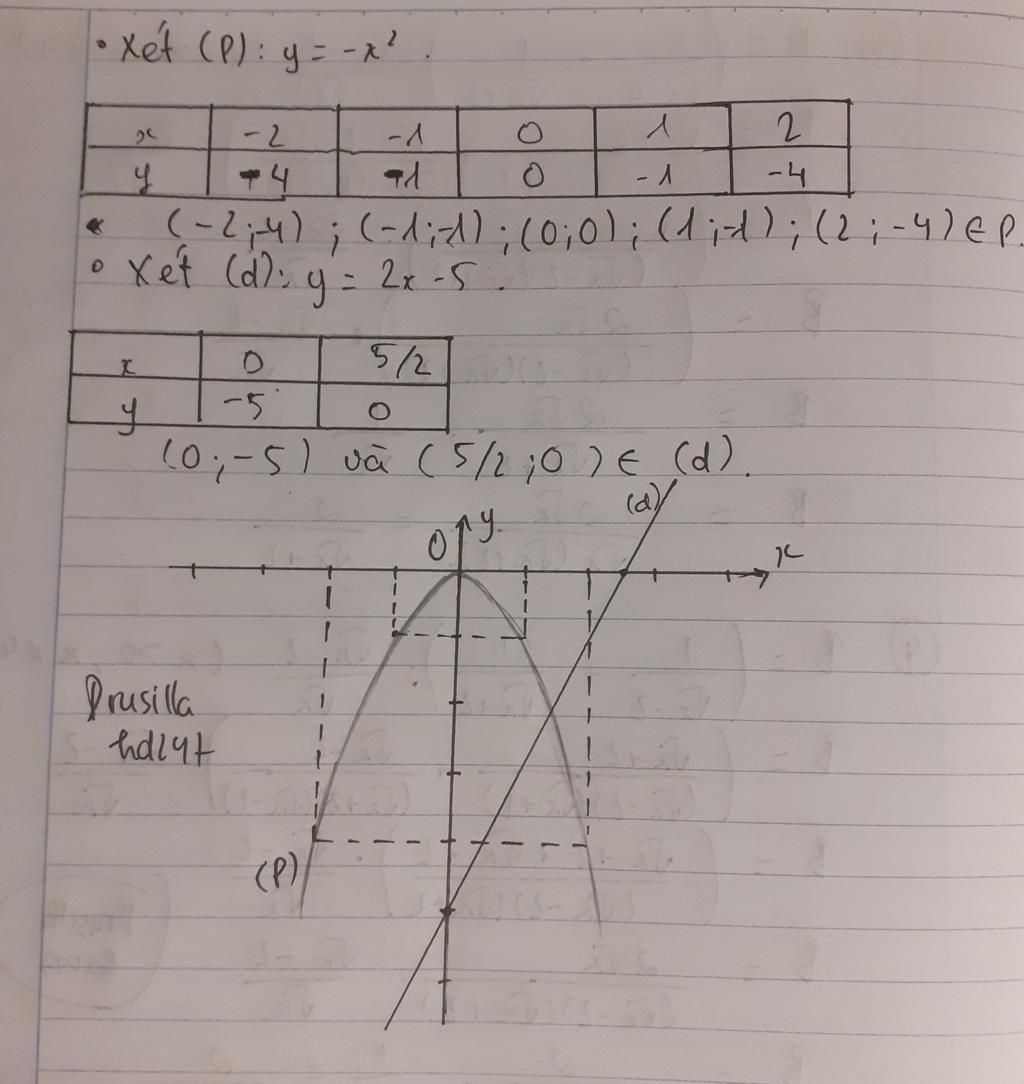 • Xét (P): y = -x² .
x -2 -1 0 1 2
y -4 -1 0 -1 -4
(-2;-4) ; (-1;-1) ; (0;0) ; (1;-1) ; (2;-4) ∈ P.
• Xét (d): y = 2x - 5 .
x 0 5/2
y -5 0
(0;-5) và (5/2;0) ∈ (d).
(d)
O y
x
Drusilla
(P)